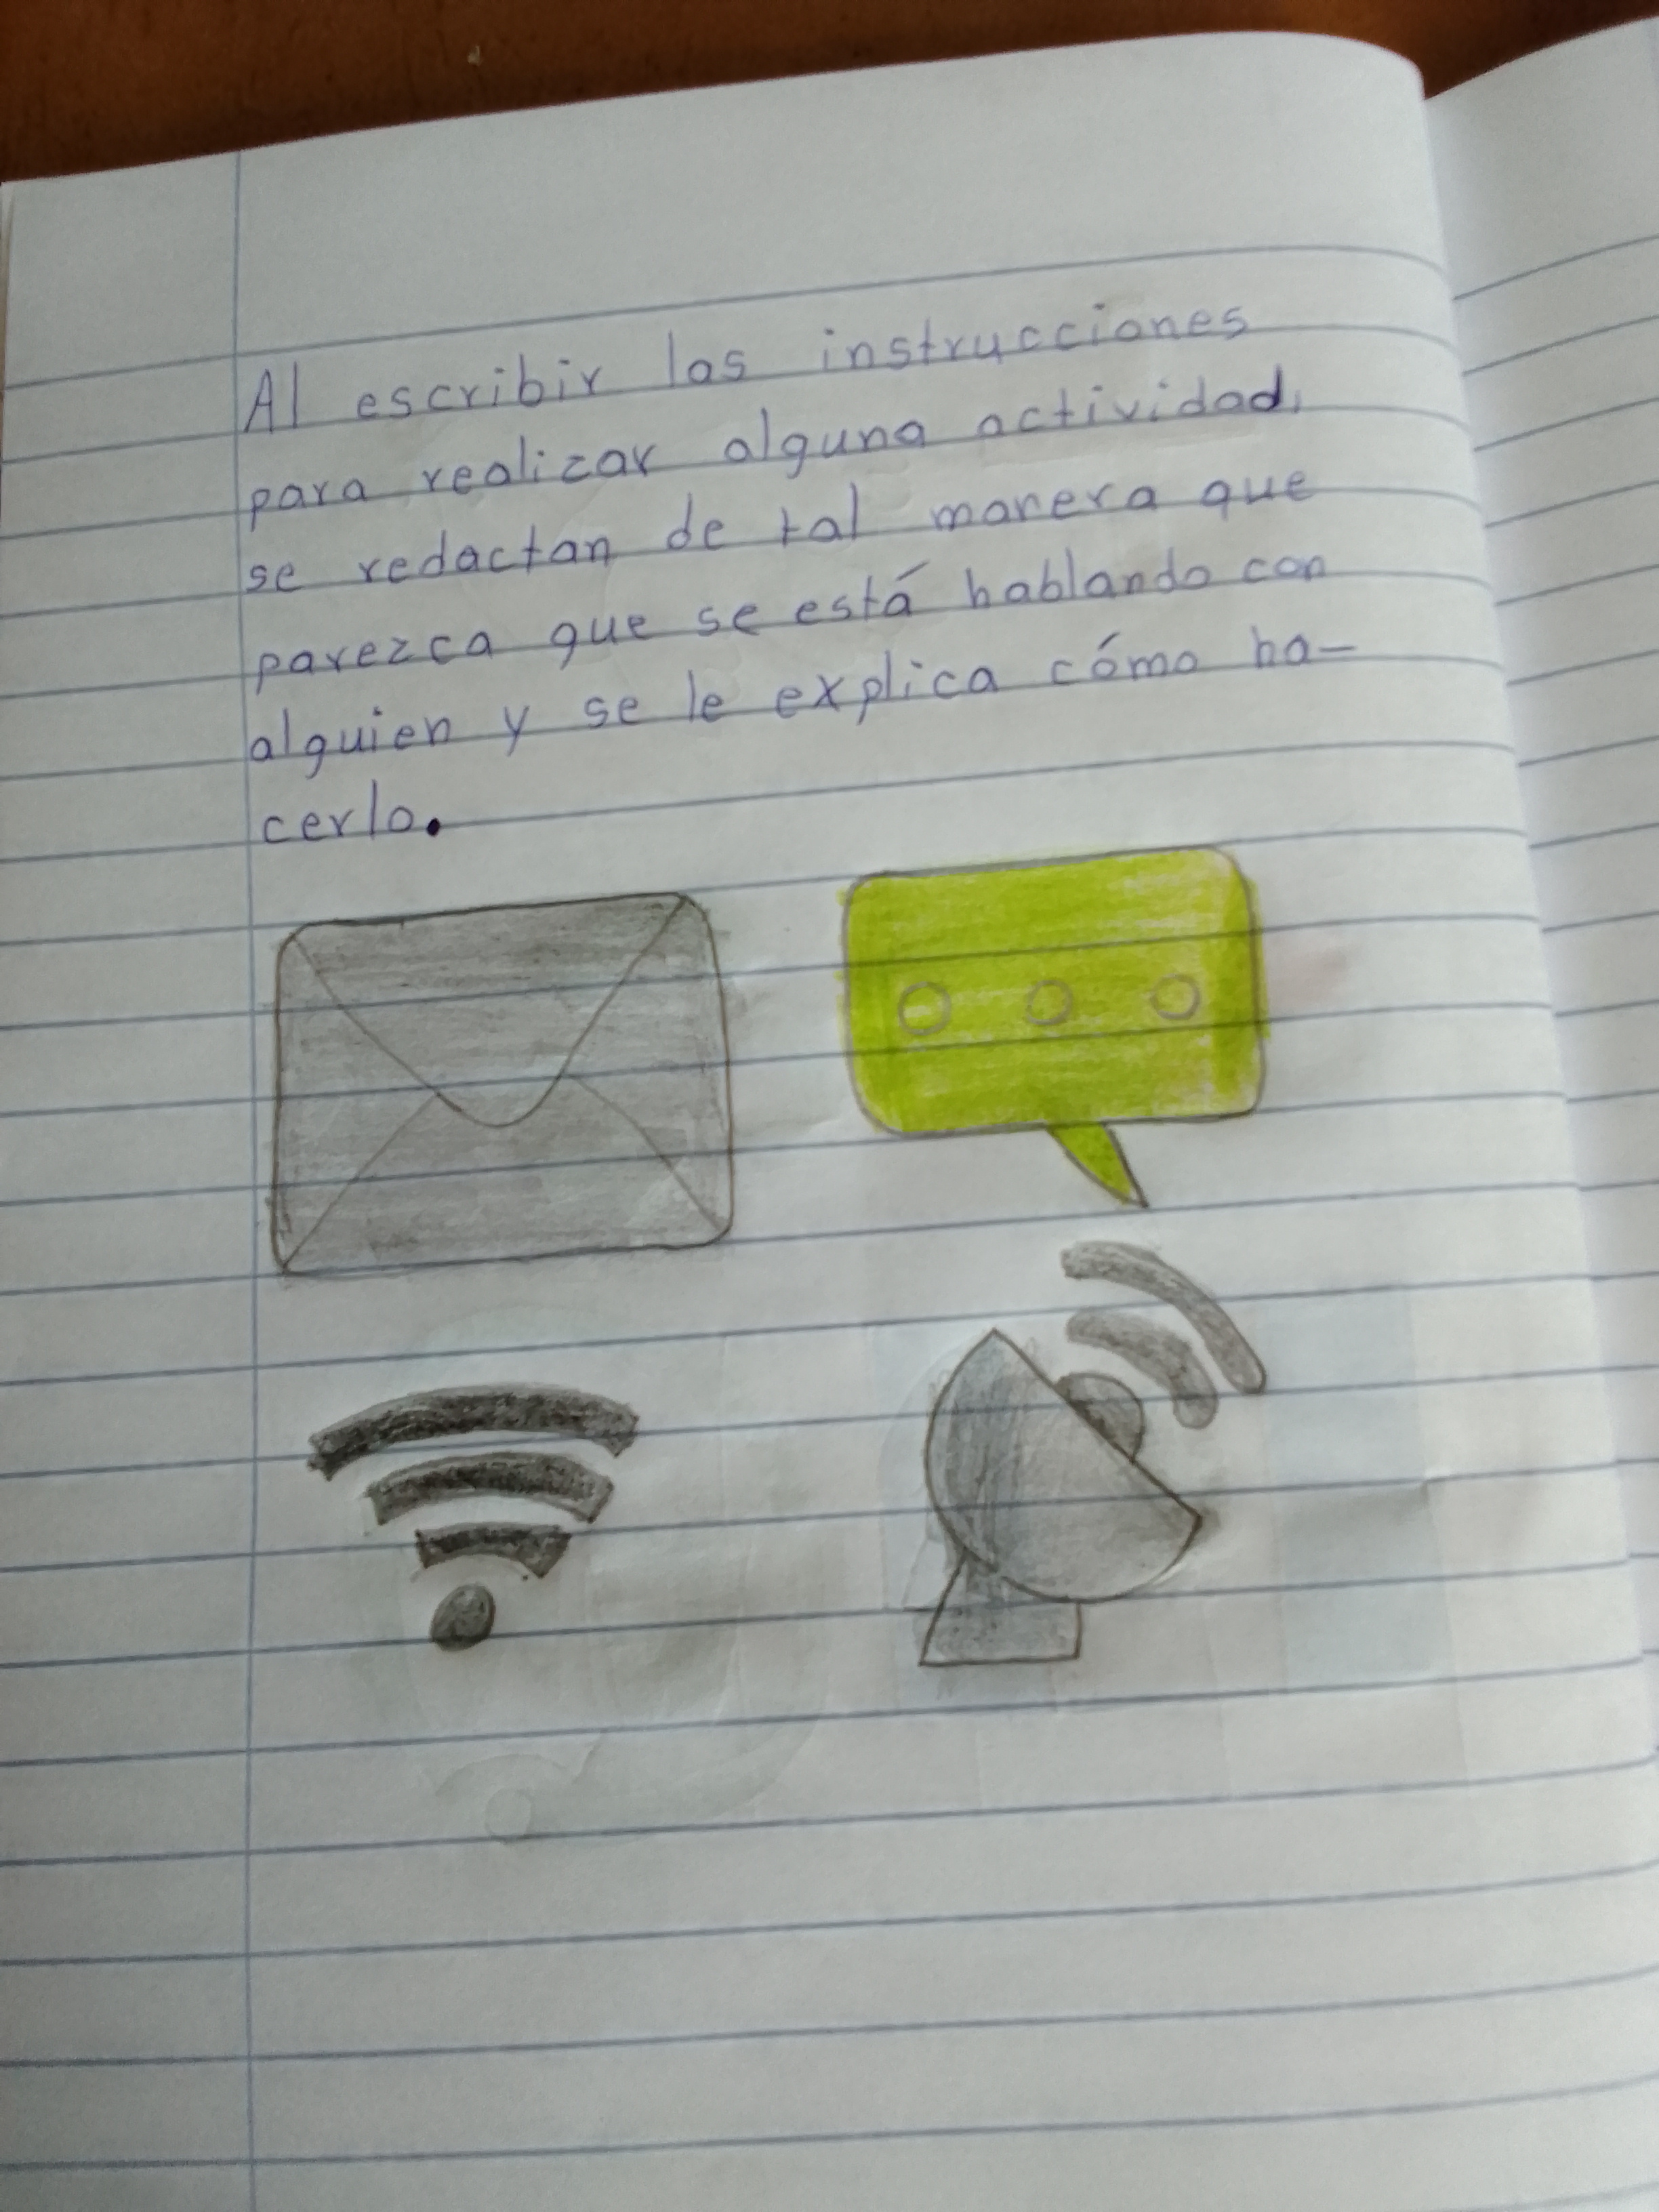 Al escribir las instrucciones
para realizar alguna actividad,
se redactan de tal manera que
parezca que se está hablando con
alguien y se le explica cómo ha-
cerlo.